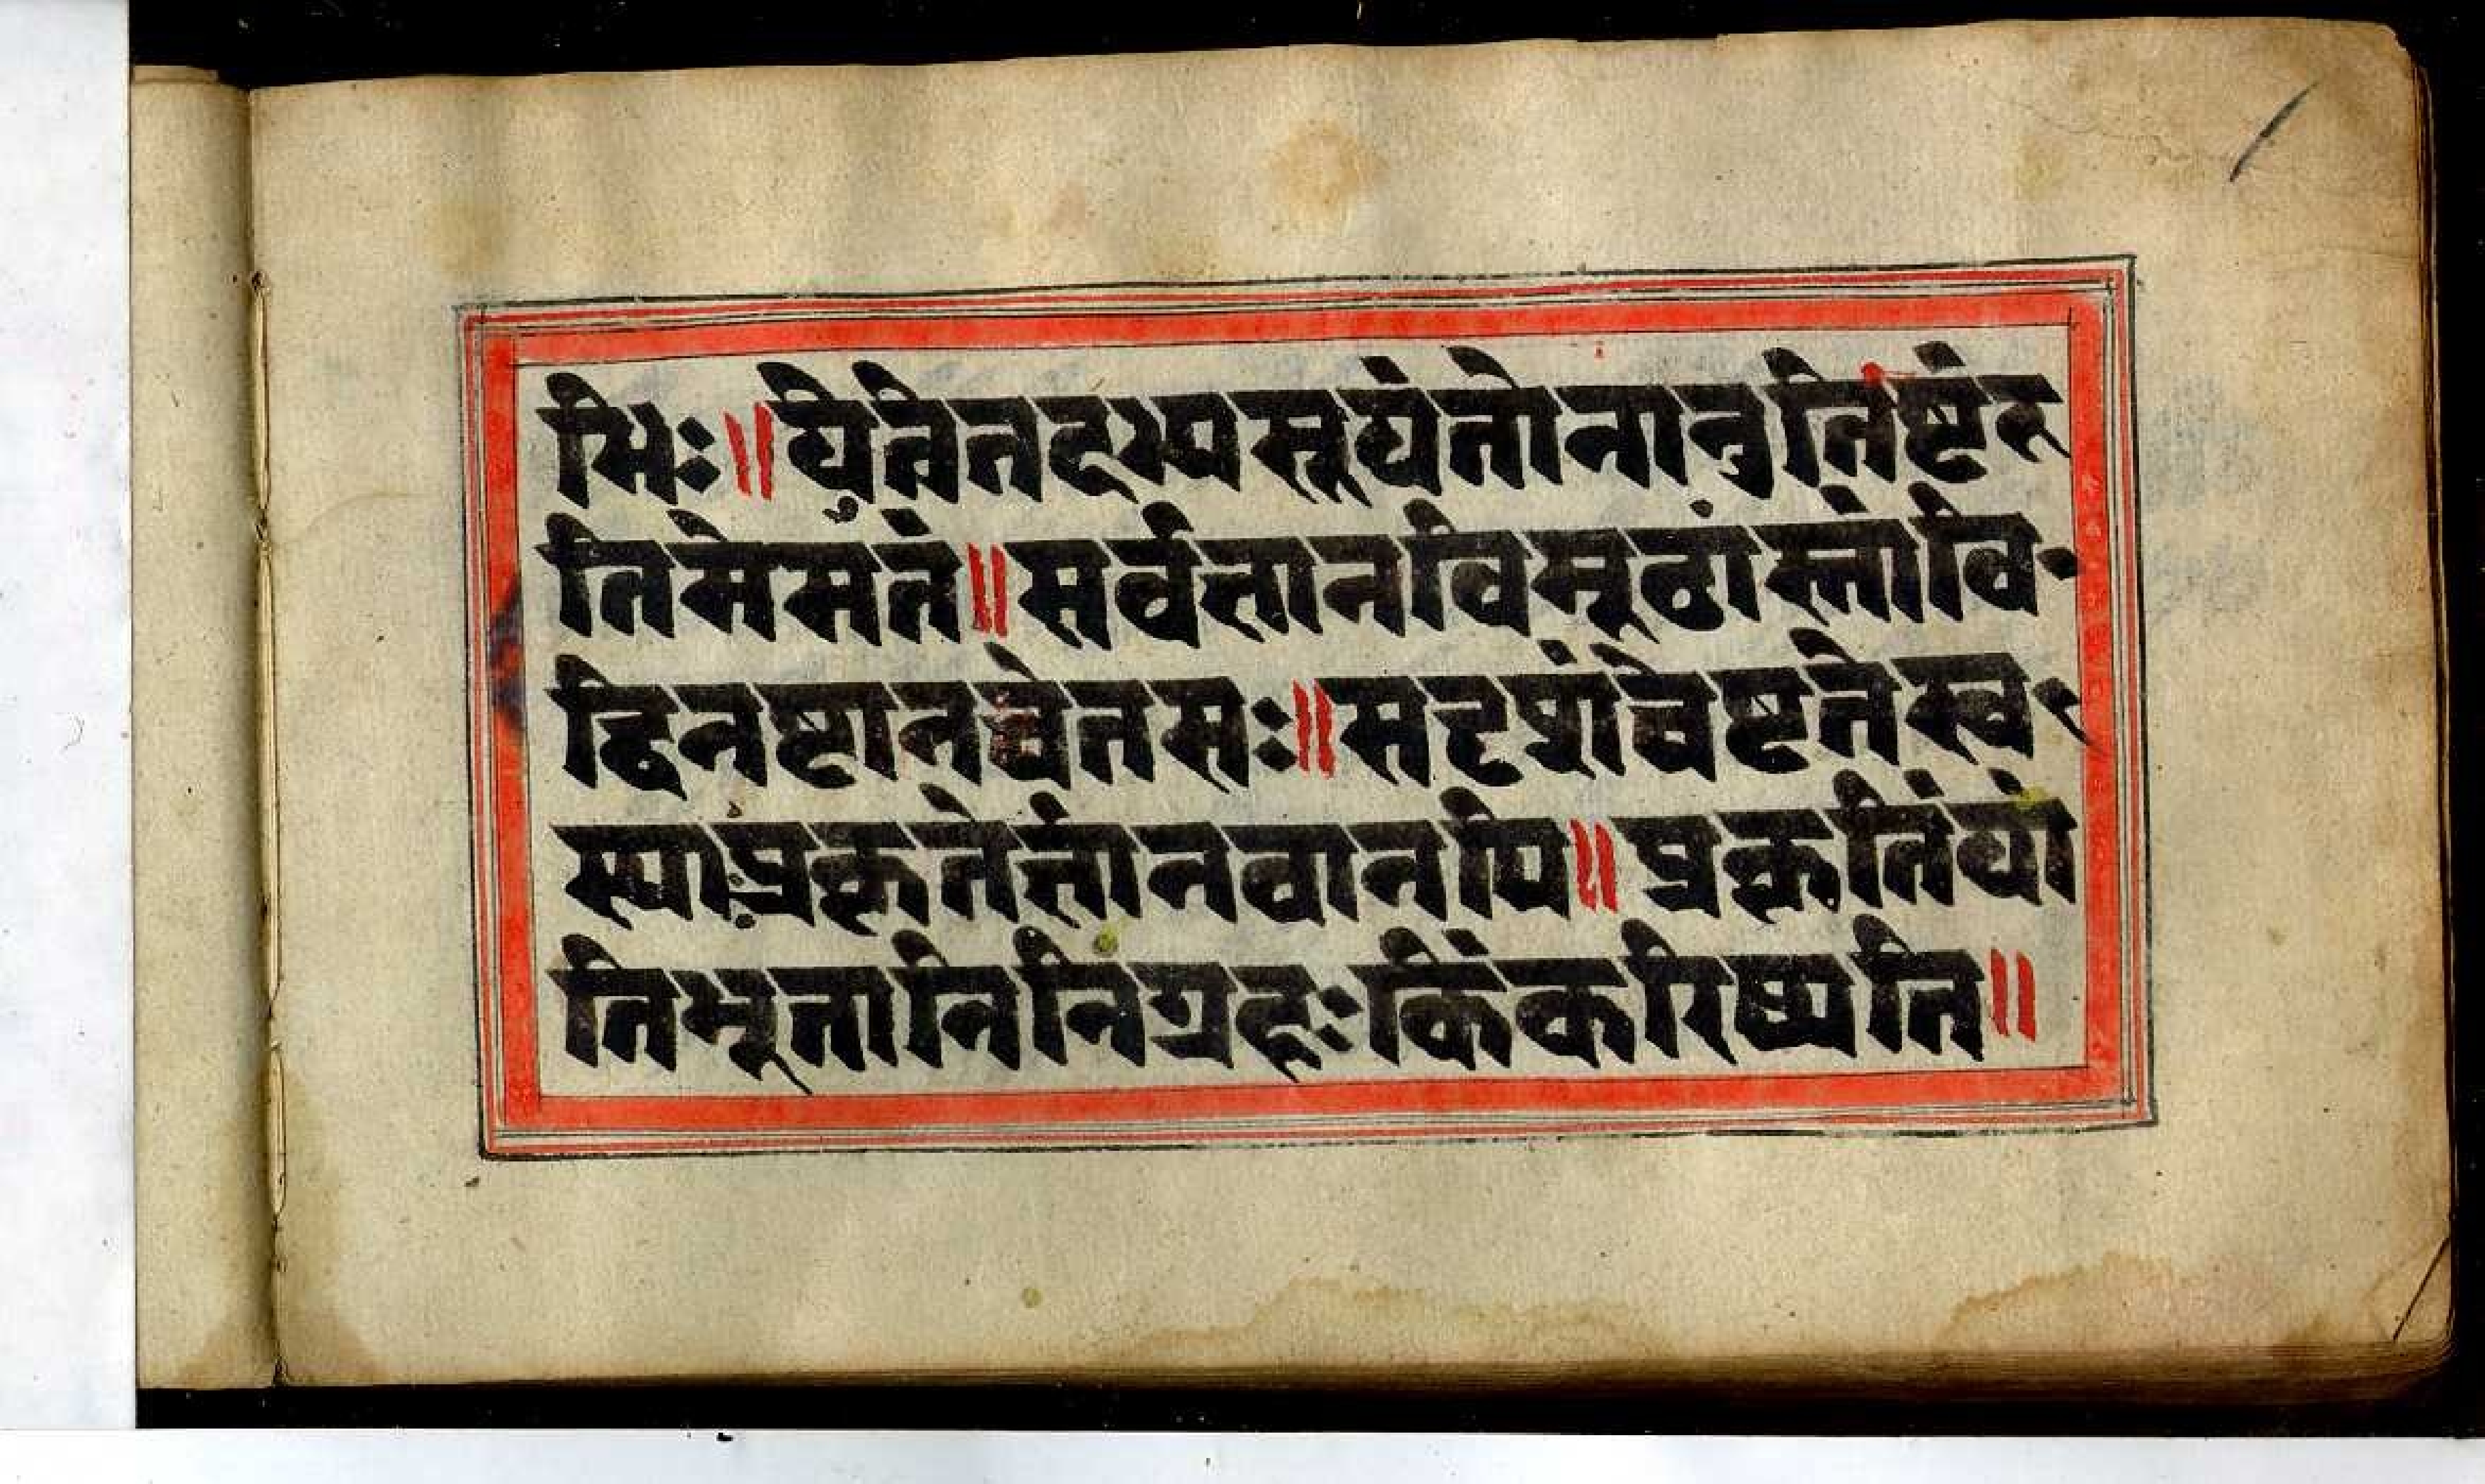 भिः॥येत्वेतदभ्यसूयंतोनानुतिष्टंत
तिमेमतं॥सर्वज्ञानविमूढांस्तान्वि
द्दिनष्टानचेतसः॥सदृशंचेष्टतेस्व
स्याःप्रकृतेर्ज्ञानवानपि॥प्रकृतिंयां
तिभूतानिनिग्रहःकिंकरिष्यति॥